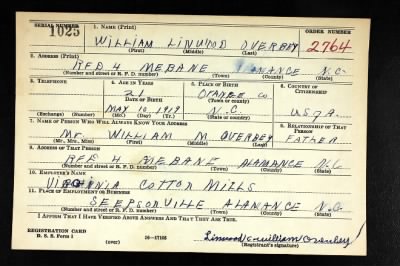 SERIAL NUMBER
1025
1. NAME (Print)
ORDER NUMBER
WILLIAM LINWOOD OVERBEY
2764
(First) (Middle) (Last)
3. ADDRESS (Print)
RFD 4 MEBANE ALAMANCE N.C.
(Number and street or R. F. D. number) (Town) (County) (State)
3. TELEPHONE
4. AGE IN YEARS
5. PLACE OF BIRTH
6. COUNTRY OF CITIZENSHIP
21
ORANGE CO.
DATE OF BIRTH
(Town or county)
MAY 10, 1919
N.C.
U.S.A.
(Exchange) (Number) (Mo.) (Day) (Yr.) (State or country)
7. NAME OF PERSON WHO WILL ALWAYS KNOW YOUR ADDRESS
8. RELATIONSHIP OF THAT PERSON
Mr. WILLIAM M OVERBEY
FATHER
(Mr., Mrs., Miss) (First) (Middle) (Last)
9. ADDRESS OF THAT PERSON
RFD 4 MEBANE ALAMANCE N.C.
(Number and street or R. F. D. number) (Town) (County) (State)
10. EMPLOYER'S NAME
VIRGINIA COTTON MILLS
11. PLACE OF EMPLOYMENT OR BUSINESS
SEEPSONVILLE ALAMANCE N.C.
(Number and street or R. F. D. number) (Town) (County) (State)
I AFFIRM THAT I HAVE VERIFIED ABOVE ANSWERS AND THAT THEY ARE TRUE.
REGISTRATION CARD
D. S. S. Form 1
(over)
16—17105
Linwood William Overbey
(Registrant's signature)